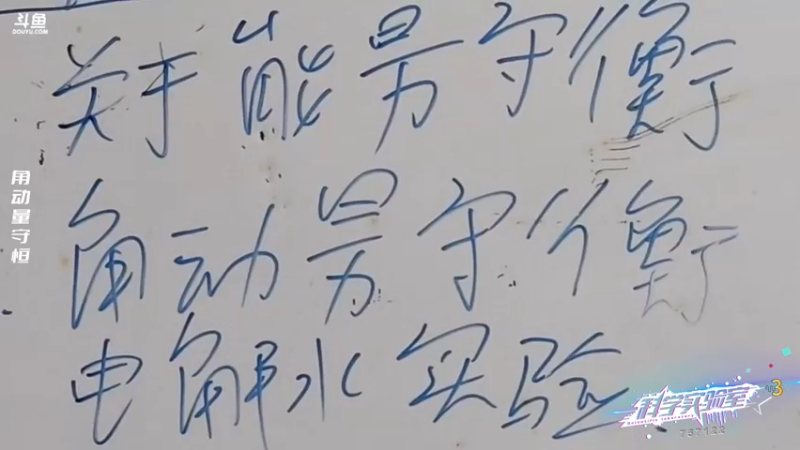 斗鱼
DOUYU.COM
关于能量守衡
角动量守衡
电解水实验
角动量守恒
科学实验室